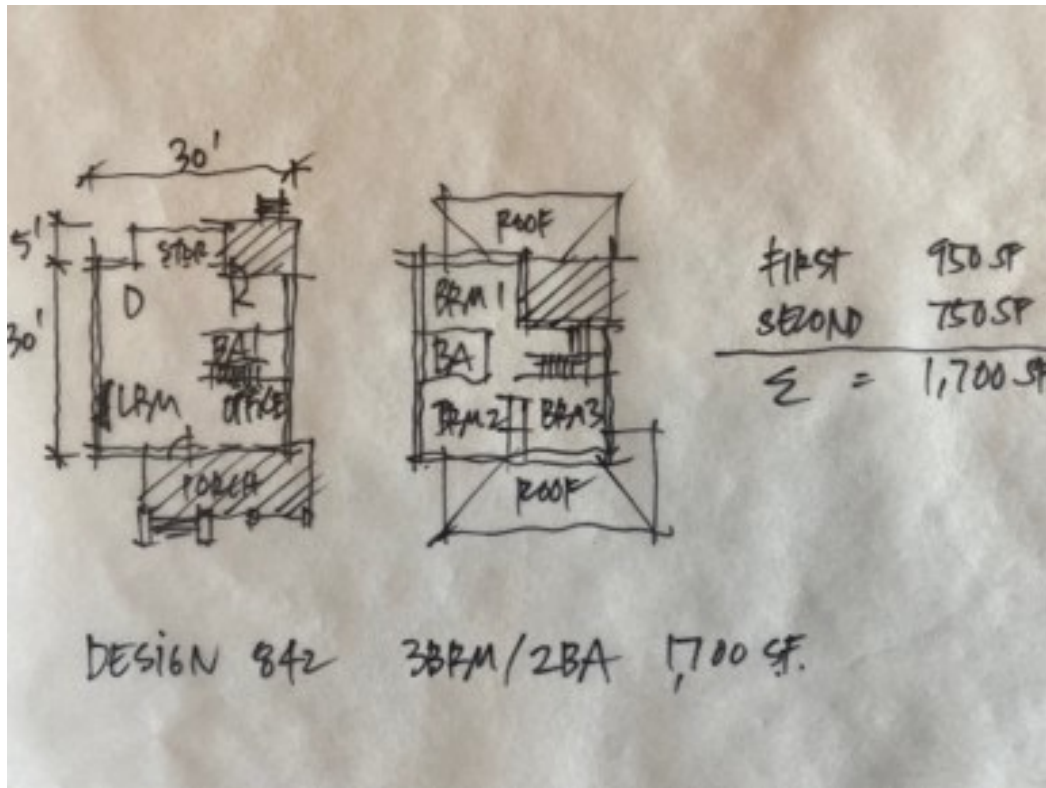 30'
5'
STOR
D
K
30'
BA
LRM
OFFICE
PORCH
ROOF
BRM 1
BA
BRM2
BRM3
ROOF
FIRST 950 SF
SECOND 750 SF
Σ = 1,700 SF
DESIGN 842 3BRM/2BA 1,700 SF.